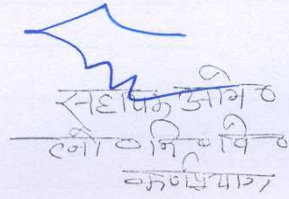 सहायक अभि०
लो० नि० वि०
कर्णप्रयाग